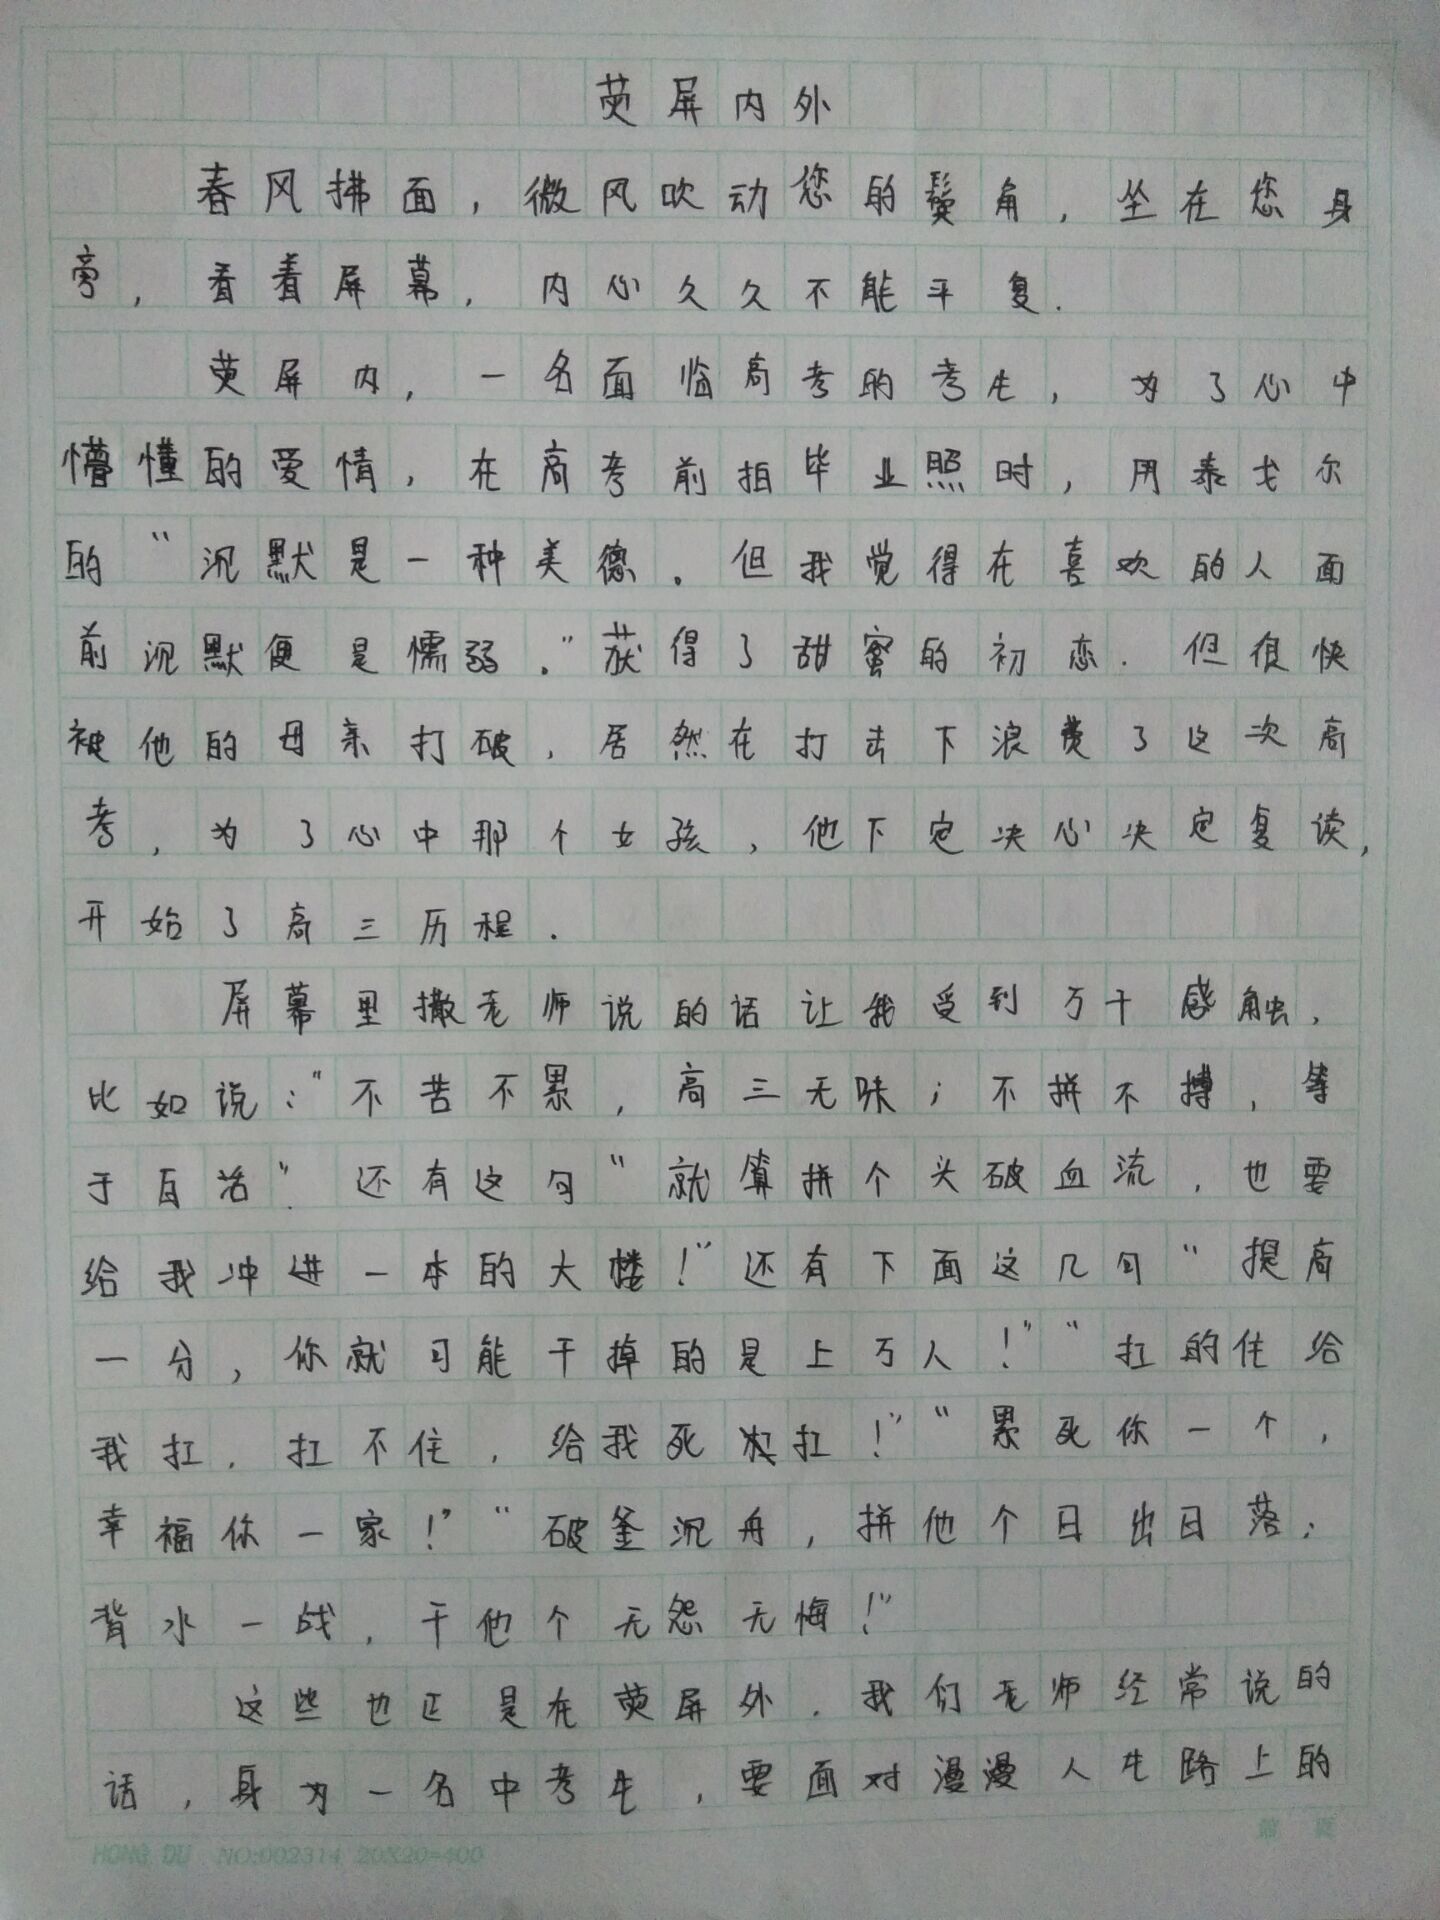 荧屏内外
春风拂面，微风吹动您的鬓角，坐在您身
旁，看着屏幕，内心久久不能平复.
荧屏内，一名面临高考的考生，为了心中
懵懂的爱情，在高考前拍毕业照时，用泰戈尔
的“沉默是一种美德。但我觉得在喜欢的人面
前沉默便是懦弱.”获得了甜蜜的初恋.但很快
被他的母亲打破，居然在打击下浪费了这次高
考，为了心中那个女孩，他下定决心决定复读，
开始了高三历程.
屏幕里撒老师说的话让我受到万千感触，
比如说：“不苦不累，高三无味；不拼不搏，等
于白活”.还有这句“就算拼个头破血流，也要
给我冲进一本的大楼！”还有下面这几句“提高
一分，你就可能干掉的是上万人！”“扛的住给
我扛，扛不住，给我死扛！”“累死你一个，
幸福你一家！”“破釜沉舟，拼他个日出日落；
背水一战，干他个无怨无悔！”
这些也正是在荧屏外.我们老师经常说的
话，身为一名中考生，要面对漫漫人生路上的
HONG DU NO:002314 20X20=400
第 页